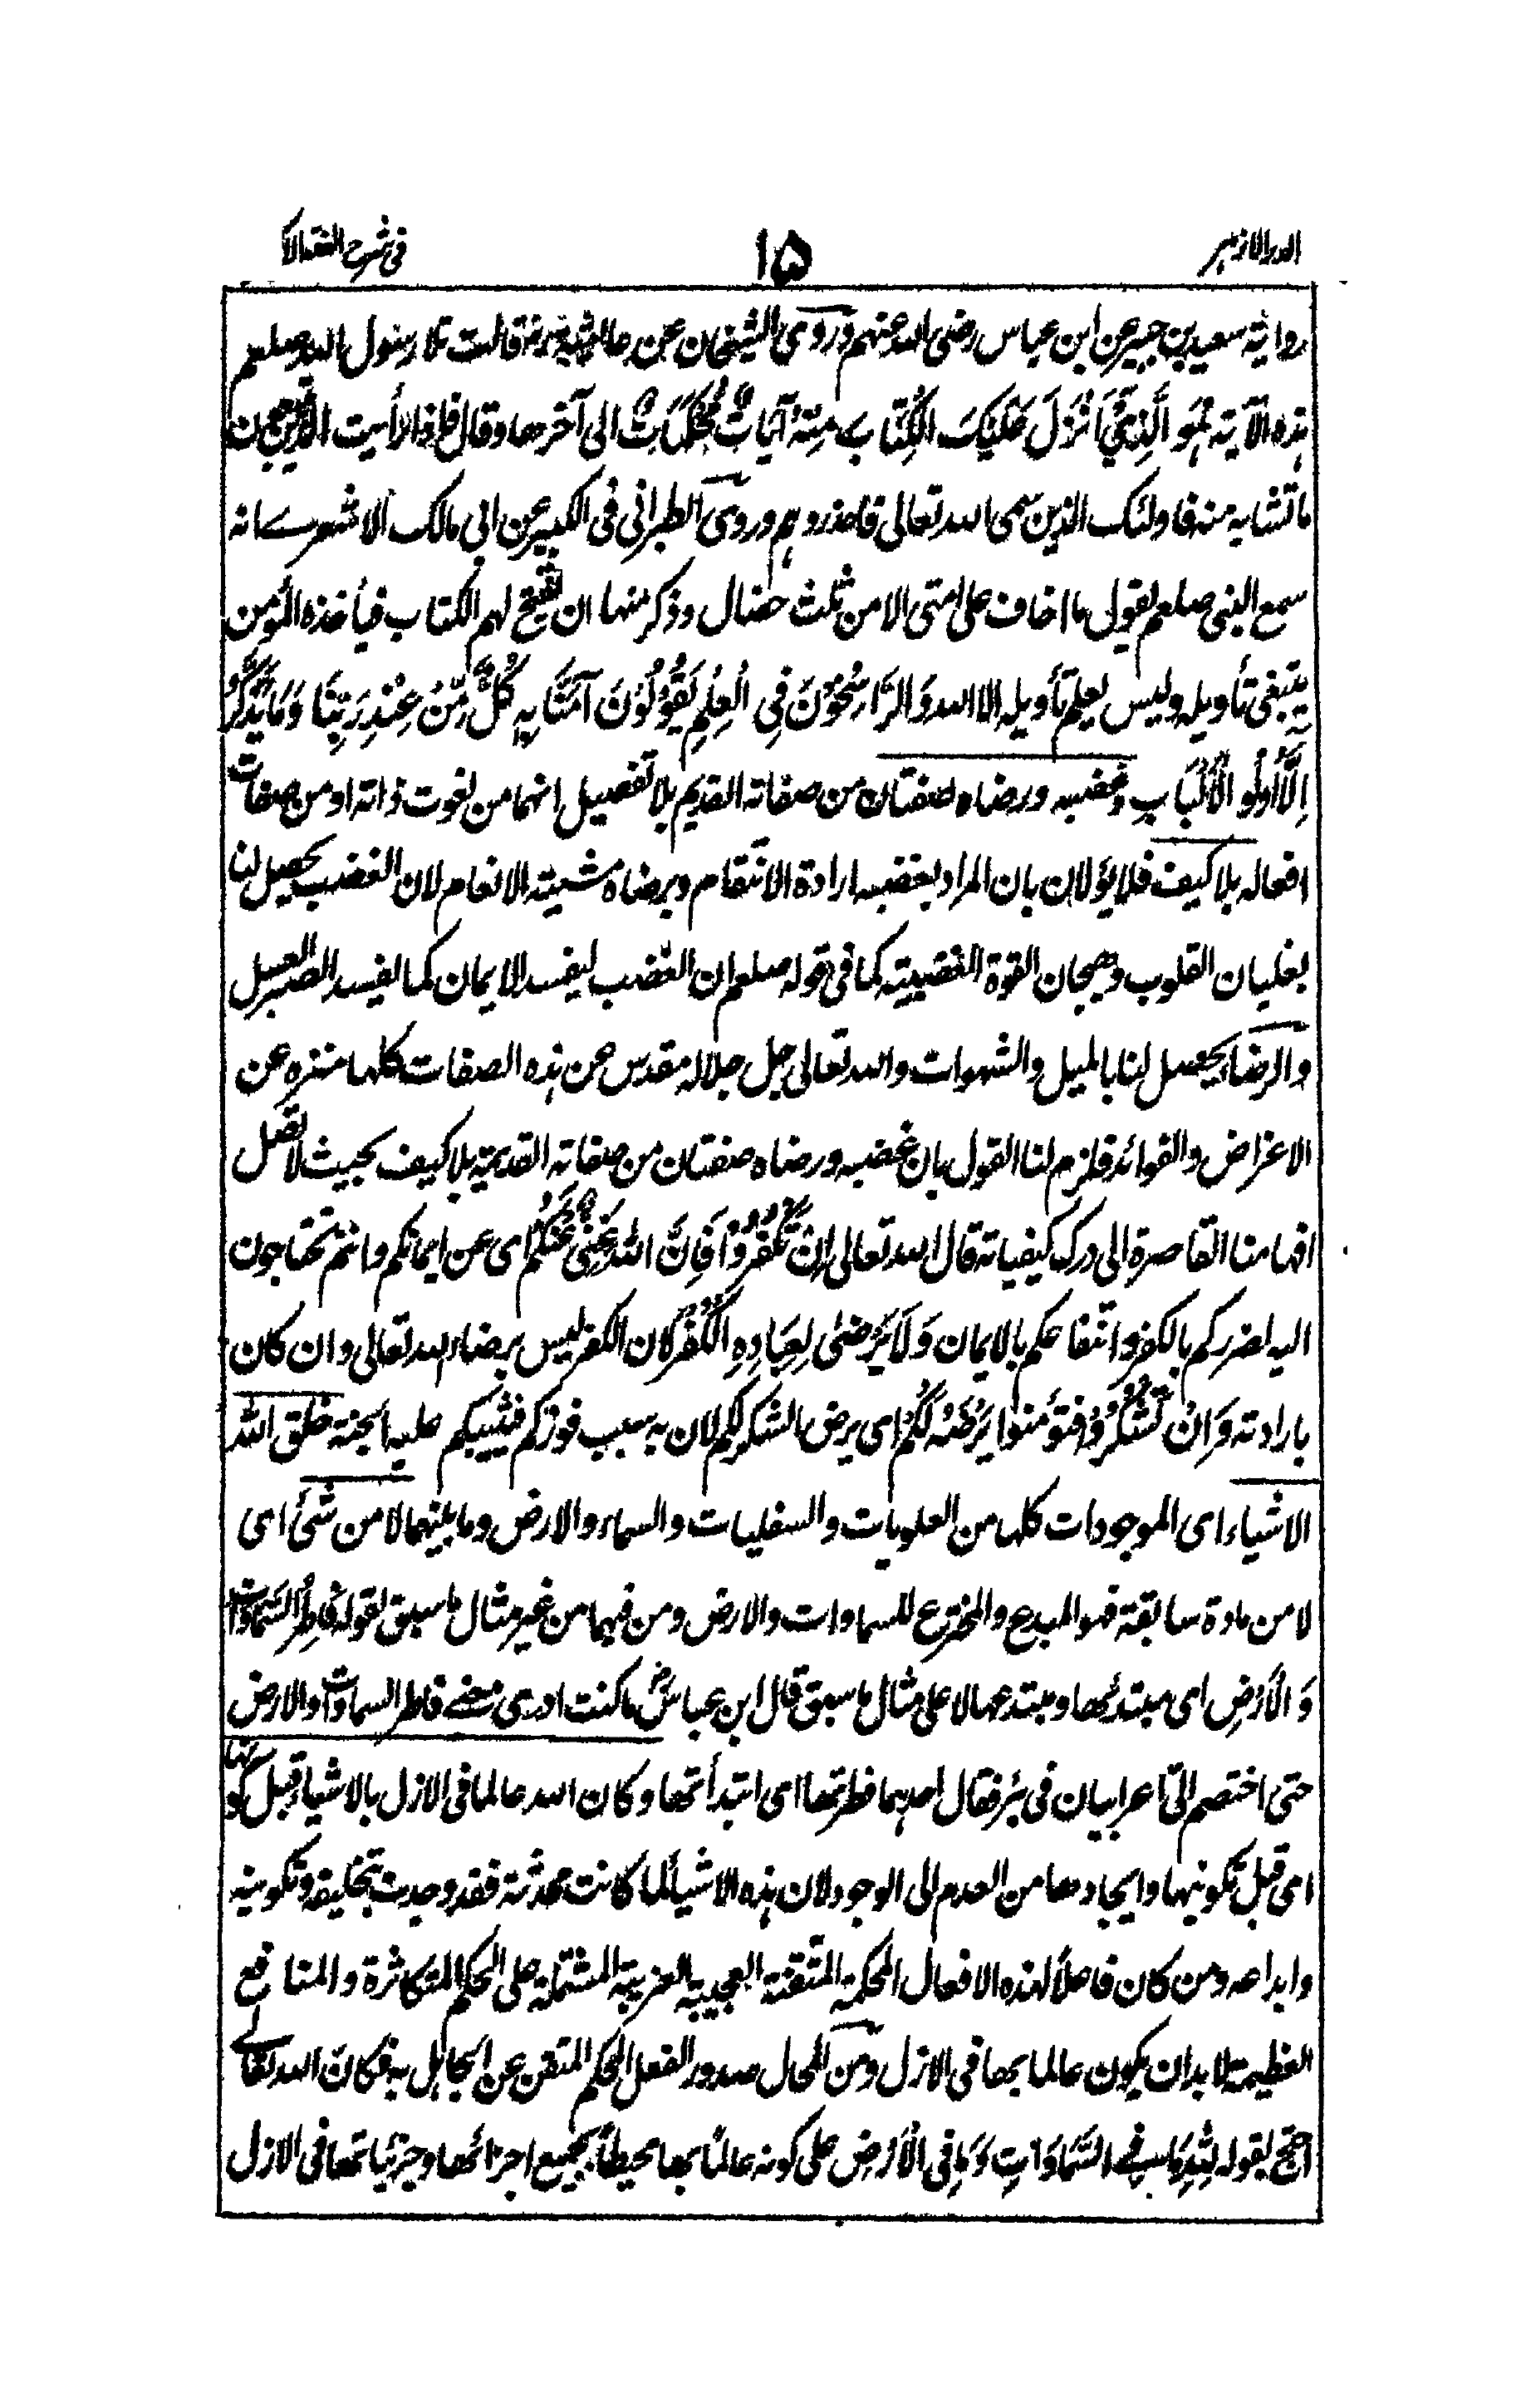 الدر الازهر ١٥ فى شرح الفقه الاكبر
رواية سعيد بن جبير عن ابن عباس رضى الله عنهم وروى الشيخان عن عائشة رضـ قالت تلا رسول الله صلعم
هذه الآية هُوَ الَّذِىْ اَنْزَلَ عَلَيْكَ الْكِتَابَ مِنْهُ آيَاتٌ مُحْكَمَاتٌ الى آخرها وقال فاذا رأيت الذين يتبعون
ما تشابه منه فاولئك الذين سمى الله تعالى فاحذروهم وروى الطبرانى فى الكبير عن ابى مالك الاشعرى انه
سمع النبى صلعم يقول ما اخاف على امتى الا من ثلث خصال وذكر منها ان يفتح لهم الكتاب فيأخذه المؤمن
يبتغى تأويله وليس يعلم تأويله الا الله وَالرَّاسِخُوْنَ فِى الْعِلْمِ يَقُوْلُوْنَ آمَنَّا بِهِ كُلٌّ مِّنْ عِنْدِ رَبِّنَا وَمَا يَذَّكَّرُ
اِلَّا اُولُو الْاَلْبَابِ وغضبه ورضاه صفتان من صفاته القديم بلا تفصيل انهما من نعوت ذاته او من صفات
افعاله بلا كيف فلا يؤلان بان المراد بغضبه ارادة الانتقام وبرضاه مشيته الانعام لان الغضب يحصل لنا
بغليان القلوب وهيجان القوة الغضبية كما فى قوله صلعم ان الغضب ليفسد الايمان كما يفسد الصبر العسل
والرضا يحصل لنا بالميل والشهوات والله تعالى جل جلاله مقدس عن هذه الصفات كلها منزه عن
الاغراض والفوائد فلزم لنا القول بان غضبه ورضاه صفتان من صفاته القديمة بلا كيف بحيث لا تصل
افهامنا القاصرة الى درك كيفياته قال الله تعالى اِنْ تَكْفُرُوْا فَاِنَّ اللّٰهَ غَنِىٌّ عَنْكُمْ اى عن ايمانكم وانتم تحتاجون
اليه لضرركم بالكفر وانتفاعكم بالايمان وَلَا يَرْضٰى لِعِبَادِهِ الْكُفْرَ لان الكفر ليس برضاء الله تعالى وان كان
بارادته وَاِنْ تَشْكُرُوْا فتؤمنوا يَرْضَهُ لَكُمْ اى يرض الشكر لكم لان به سبب فوزكم فيثيبكم عليه الجنة خلق الله
الاشياء اى الموجودات كلها من العلويات والسفليات والسماء والارض وما بينهما لا من شئ اى
لا من مادة سابقة فهو المبدع والمخترع للسماوات والارض ومن فيهما من غير مثال ما سبق لقوله فَاطِرُ السَّمٰوَاتِ
وَالْاَرْضِ اى مبتدئها ومبتدعها لا على مثال ما سبق قال ابن عباسؓ ما كنت ادرى معنى فاطر السماوات والارض
حتى اختصم الىّ اعرابيان فى بئر فقال احدهما فطرتها اى ابتدأتها وكان الله عالما فى الازل بالاشياء قبل كونها
اى قبل تكوينها وايجادها من العدم الى الوجود لان هذه الاشياء لما كانت محدثة فقد وجدت بتخليقه وتكوينه
وابداعه ومن كان فاعلا لهذه الافعال المحكمة المتقنة العجيبة الغريبة المشتملة على الحكم المتكاثرة والمنافع
العظيمة لا بد ان يكون عالما بها فى الازل ومن المحال صدور الفعل المحكم المتقن عن الجاهل به فكان الله تعالى
احتج بقوله لِلّٰهِ مَا فِى السَّمَاوَاتِ وَمَا فِى الْاَرْضِ على كونه عالمًا بها محيطًا بجميع اجزائها وجزئياتها فى الازل